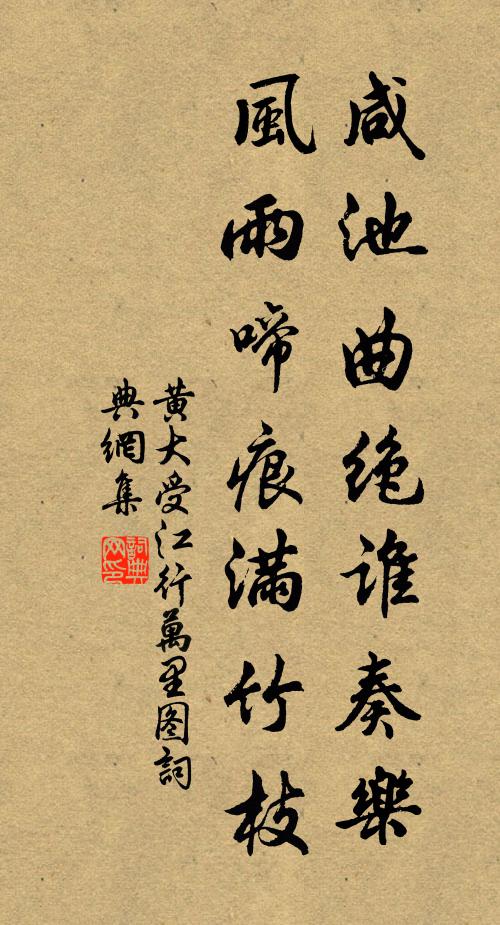 咸池曲绝谁奏樂
風雨啼痕滿竹枝
黄大受江行萬里图詞
典網集
詞典
网印